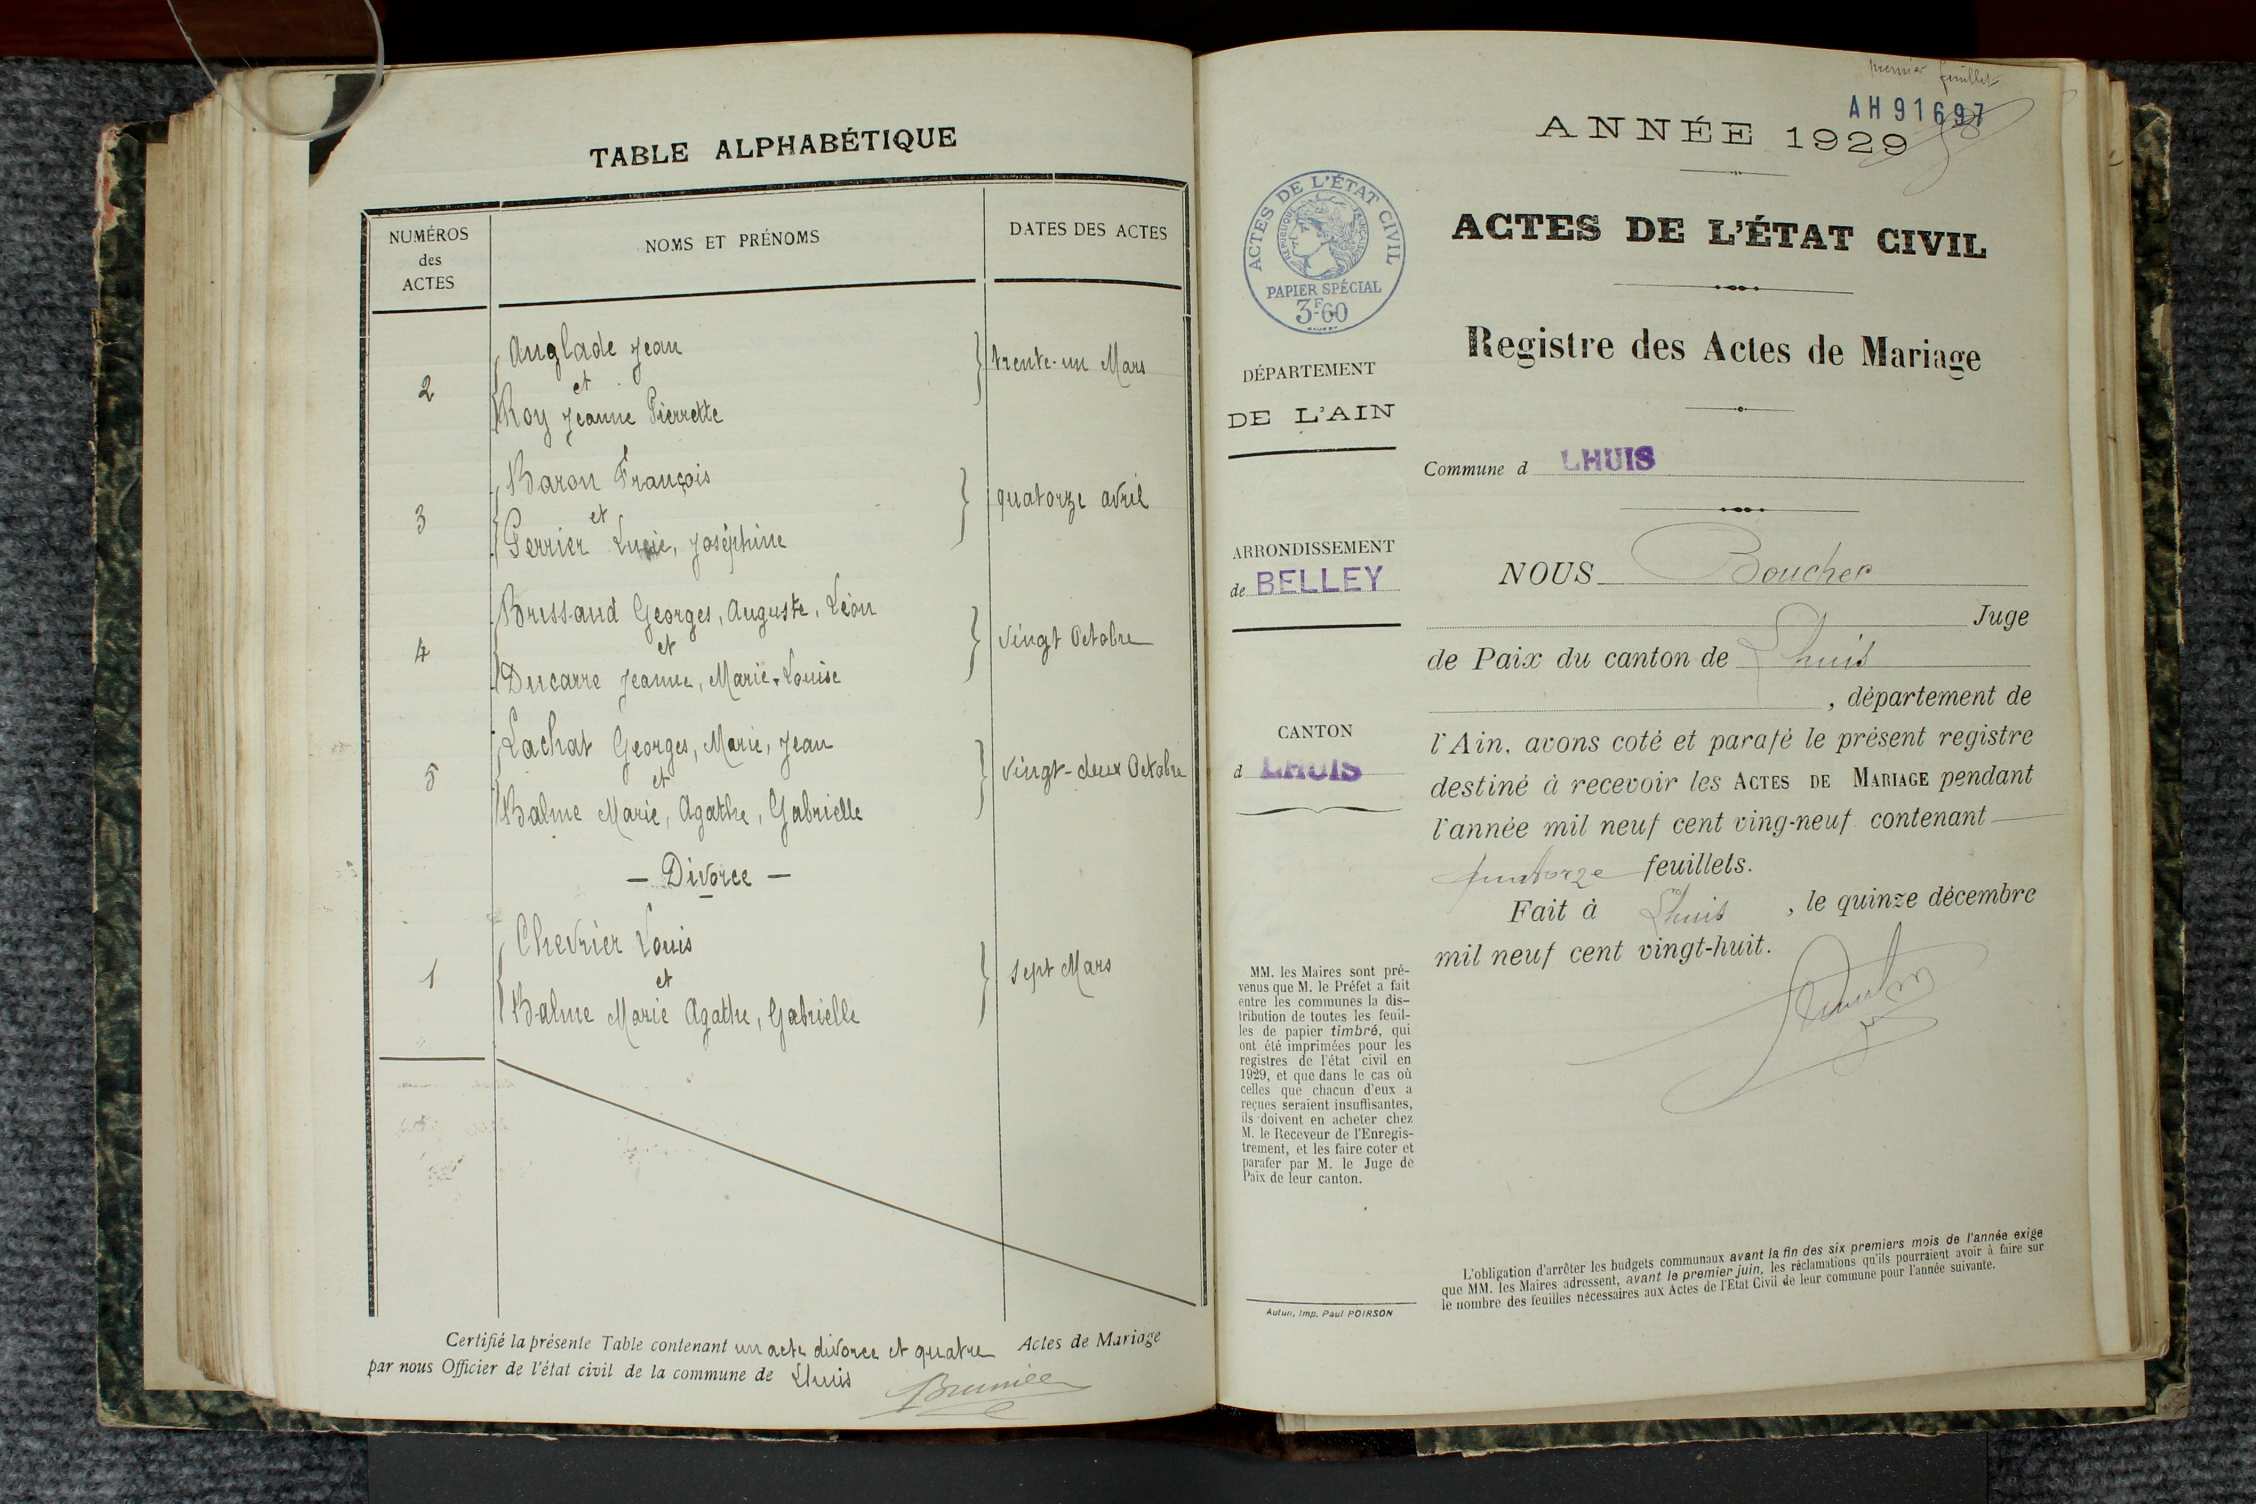 TABLE ALPHABÉTIQUE
NUMÉROS
des
ACTES
NOMS ET PRÉNOMS
DATES DES ACTES
Anglade Jean
2
et
trente-un Mars
Roy Jeanne Pierrette
Baron François
3
et
quatorze avril
Perrier Lucie, Joséphine
Brissaud Georges, Auguste, Léon
4
et
vingt Octobre
Ducarre Jeanne, Marie-Louise
Lachat Georges, Marie, Jean
5
et
vingt-deux Octobre
Balme Marie, Agathe, Gabrielle
— Divorce —
Chevrier Louis
1
et
sept Mars
Balme Marie Agathe, Gabrielle
Certifié la présente Table contenant un acte divorce et quatre Actes de Mariage
par nous Officier de l'état civil de la commune de Lhuis
premier feuillet
AH91697
ANNÉE 1929
ACTES DE L'ÉTAT CIVIL
RÉPUBLIQUE FRANÇAISE
PAPIER SPÉCIAL
3F60
ACTES DE L'ÉTAT CIVIL
Registre des Actes de Mariage
DÉPARTEMENT
DE L'AIN
Commune d LHUIS
ARRONDISSEMENT
de BELLEY
CANTON
d LHUIS
NOUS Boucher
Juge
de Paix du canton de Lhuis
, département de
l'Ain, avons coté et parafé le présent registre
destiné à recevoir les ACTES DE MARIAGE pendant
l'année mil neuf cent ving-neuf contenant
quatorze feuillets.
Fait à Lhuis, le quinze décembre
mil neuf cent vingt-huit.
MM. les Maires sont pré-
venus que M. le Préfet a fait
entre les communes la dis-
tribution de toutes les feuil-
les de papier timbré, qui
ont été imprimées pour les
registres de l'état civil en
1929, et que dans le cas où
celles que chacun d'eux a
reçues seraient insuffisantes,
ils doivent en acheter chez
M. le Receveur de l'Enregis-
trement, et les faire coter et
parafer par M. le Juge de
Paix de leur canton.
Autun, Imp. Paul POIRSON
L'obligation d'arrêter les budgets communaux avant la fin des six premiers mois de l'année exige
que MM. les Maires adressent, avant le premier juin, les réclamations qu'ils pourraient avoir à faire sur
le nombre des feuilles nécessaires aux Actes de l'Etat Civil de leur commune pour l'année suivante.